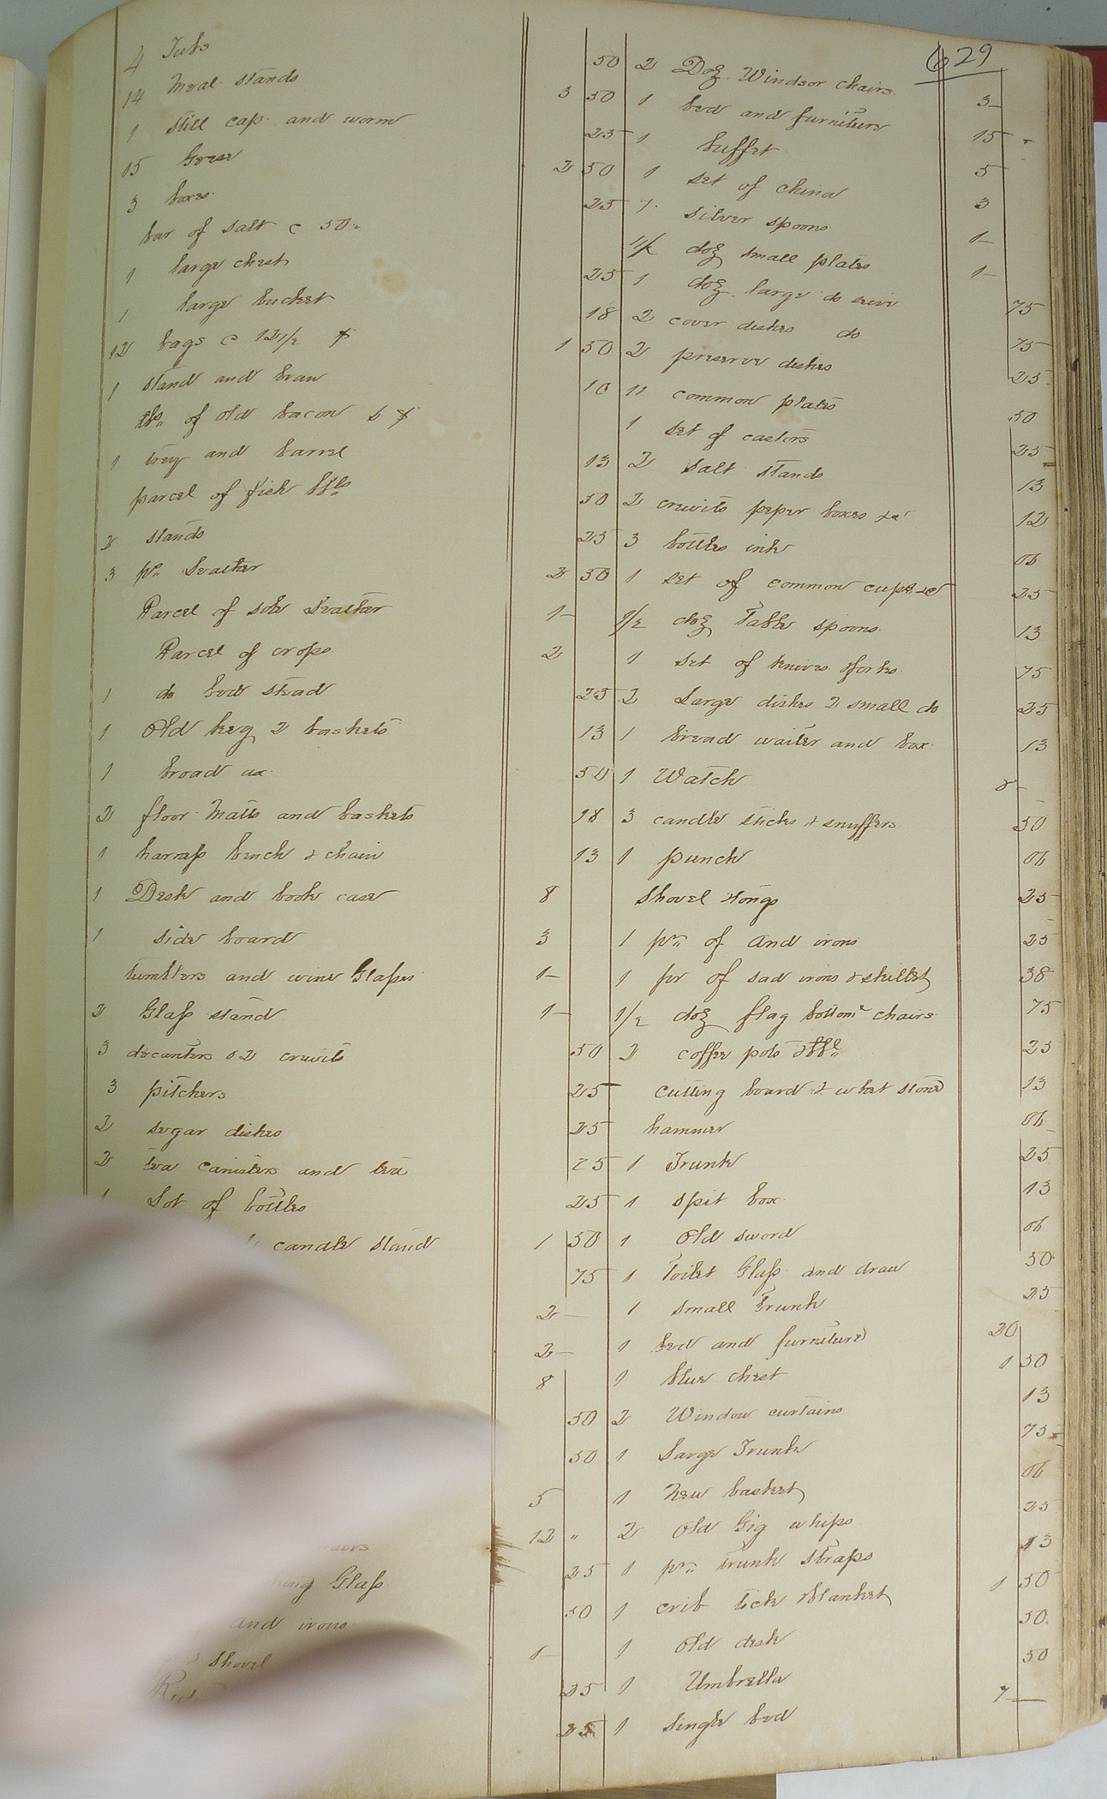 629
4 Tubs 50
14 Meal stands 3 50
1 still cap and worm 25
15 Geese 2 50
3 boxes 25
bar of salt c 50
1 large chest 25
1 large bucket 18
12 bags c 12 1/2 1 50
1 stand and bran 10
lbs of old bacon
1 trey and barrel 13
parcel of fish 50
2 stands 25
3 pr Leather 2 50
Parcel of sole Leather 1-
Parcel of crops 2
1 do bed stead 25
1 Old keg 2 baskets 13
1 broad ax 50
2 floor Matts and baskets 18
1 harness bench & chain 13
1 Desk and book case 8
1 side board 3
tumblers and wine Glasses 1-
2 Glass stand 1-
3 decanters & 2 cruits 50
3 pitchers 25
2 sugar dishes 25
2 tea canisters and tea 25
1 Lot of bottles 25
candle stand 1 50
75
2-
2-
8
50
50
5
12 "
Glass 25
and irons 50
shovel
25
25
2 Doz Windsor chairs 3-
1 bed and furniture 15
1 buffet 5
1 set of china 3
7 silver spoons 1-
1/2 doz small plates 1-
1 doz large do 75
2 cover dishes do 75
2 preserve dishes 25
11 common plates 50
1 set of casters 25
2 salt stands 13
2 cruits peper boxes &c 12
3 bottles ink 06
1 set of common cups &c 25
1/2 doz Table spoons 13
1 set of knives & forks 75
2 Large dishes 2 small do 25
1 bread waiter and box 13
1 Watch 8-
3 candle sticks & snuffers 50
1 punch 06
Shovel & tongs 25
1 pr of and irons 25
1 pr of sad irons & skillet 38
1/2 doz flag bottom chairs 75
2 coffee pots 25
cutting board & whet stone 13
hammer 06
1 Trunk 25
1 spit box 13
1 Old sword 06
1 Toilet Glass and draw 50
1 small Trunk 25
1 bed and furniture 20
1 blue chest 1 50
2 Window curtains 13
1 Large Trunk 75
1 New basket 06
2 Old Gig whips 25
1 pr trunk Straps 13
1 crib tick & blanket 1 50
1 Old desk 50
1 Umbrella 50
1 Single bed 7-